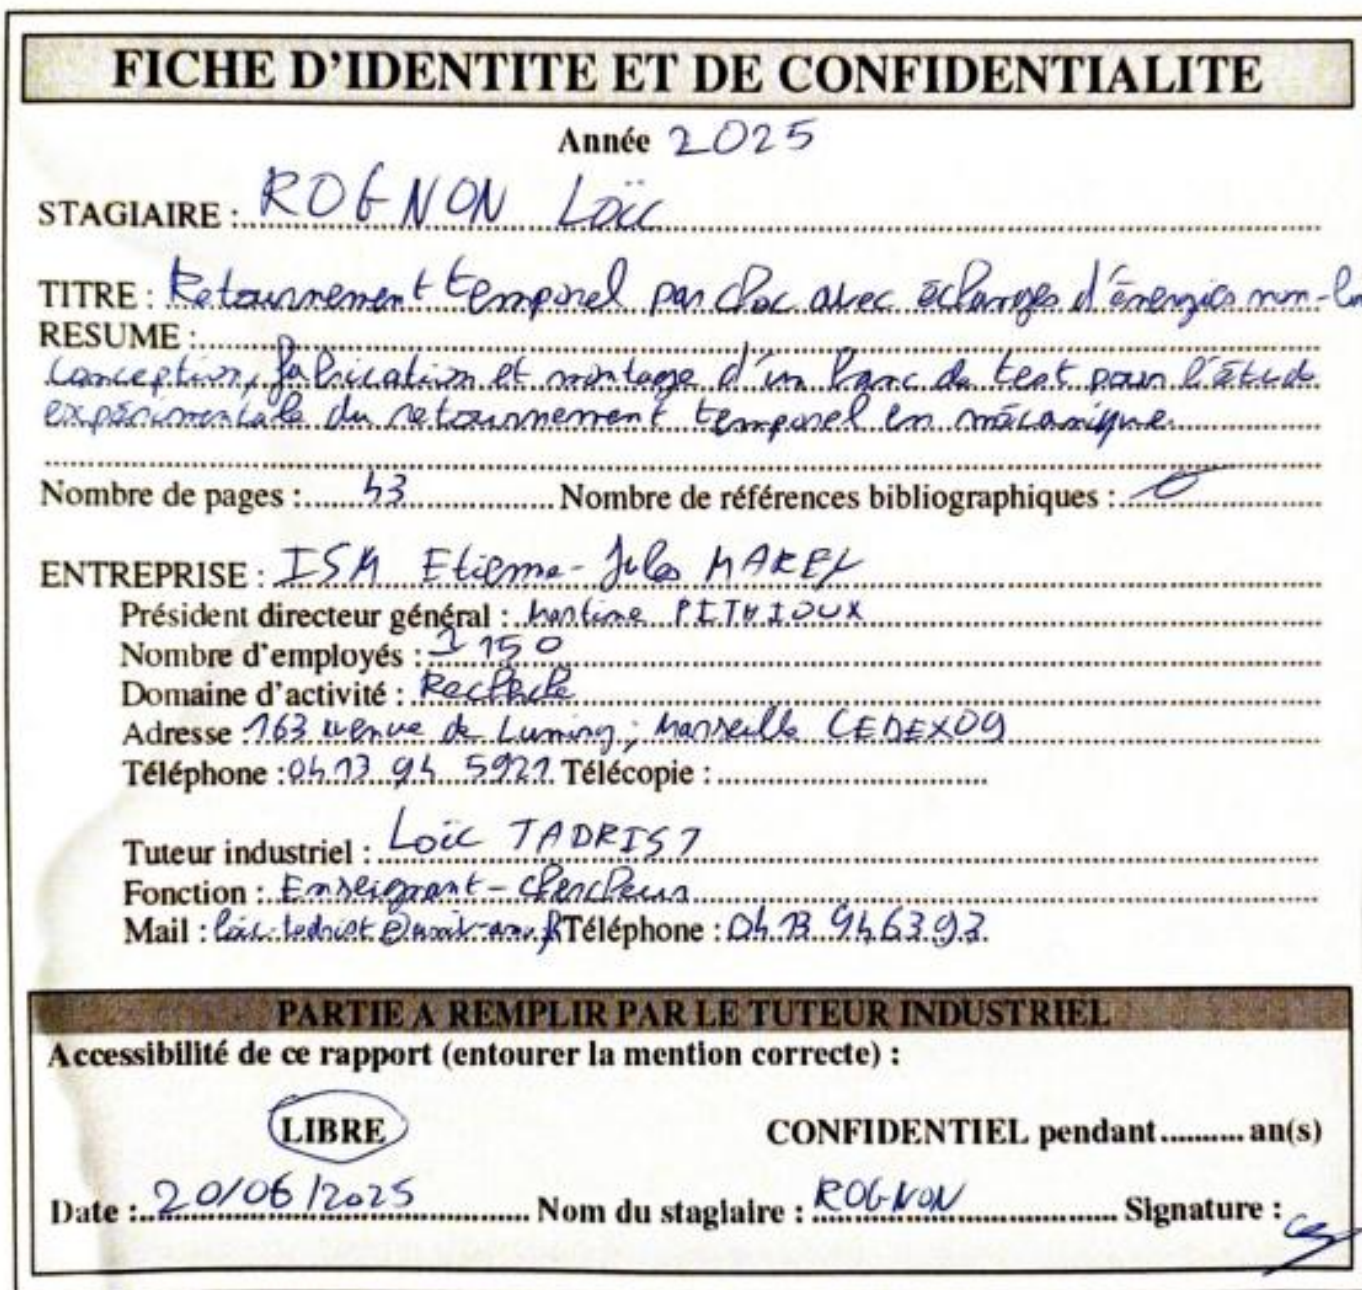 FICHE D'IDENTITE ET DE CONFIDENTIALITE
Année 2025
STAGIAIRE : ROGNON Loïc
TITRE : Retournement temporel par choc avec échanges d'énergies non-
RESUME :
Conception, fabrication et montage d'un banc de test pour l'étude
expérimentale du retournement temporel en mécanique
Nombre de pages : 43 Nombre de références bibliographiques :
ENTREPRISE : ISM Etienne-Jules MAREY
Président directeur général : Martine PITHIOUX
Nombre d'employés : 150
Domaine d'activité : Recherche
Adresse 163 avenue de Luminy ; Marseille CEDEX 09
Téléphone : 04 13 94 5921 Télécopie :
Tuteur industriel : Loïc TADRIST
Fonction : Enseignant-chercheur
Mail : loic.tadrist@univ-amu.fr Téléphone : 04 13 94 63 93
PARTIE A REMPLIR PAR LE TUTEUR INDUSTRIEL
Accessibilité de ce rapport (entourer la mention correcte) :
LIBRE CONFIDENTIEL pendant .......... an(s)
Date : 20/06/2025 Nom du stagiaire : ROGNON Signature :